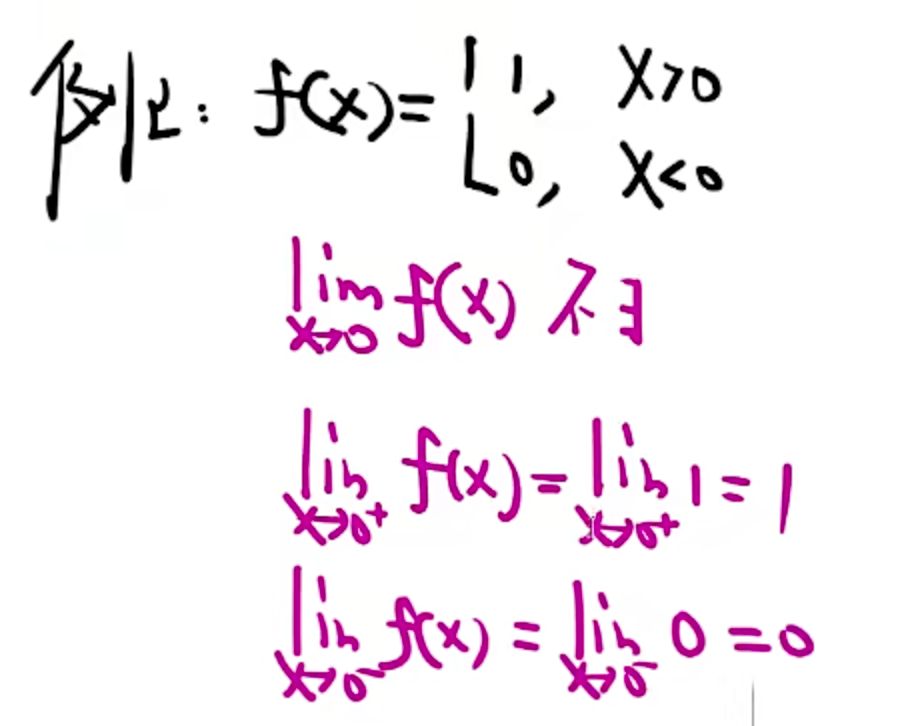 例2: f(x)={1, x>0
0, x<0
lim x→0 f(x) 不∃
lim x→0⁺ f(x) = lim x→0⁺ 1 = 1
lim x→0⁻ f(x) = lim x→0⁻ 0 = 0